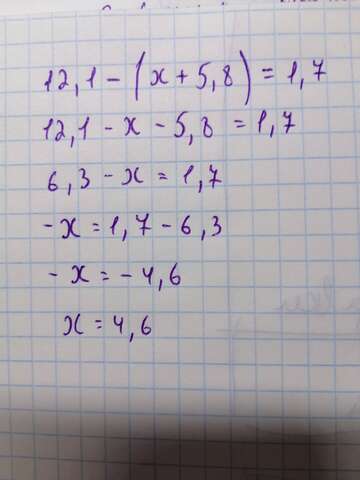 12,1 - (x + 5,8) = 1,7
12,1 - x - 5,8 = 1,7
6,3 - x = 1,7
- x = 1,7 - 6,3
- x = - 4,6
x = 4,6